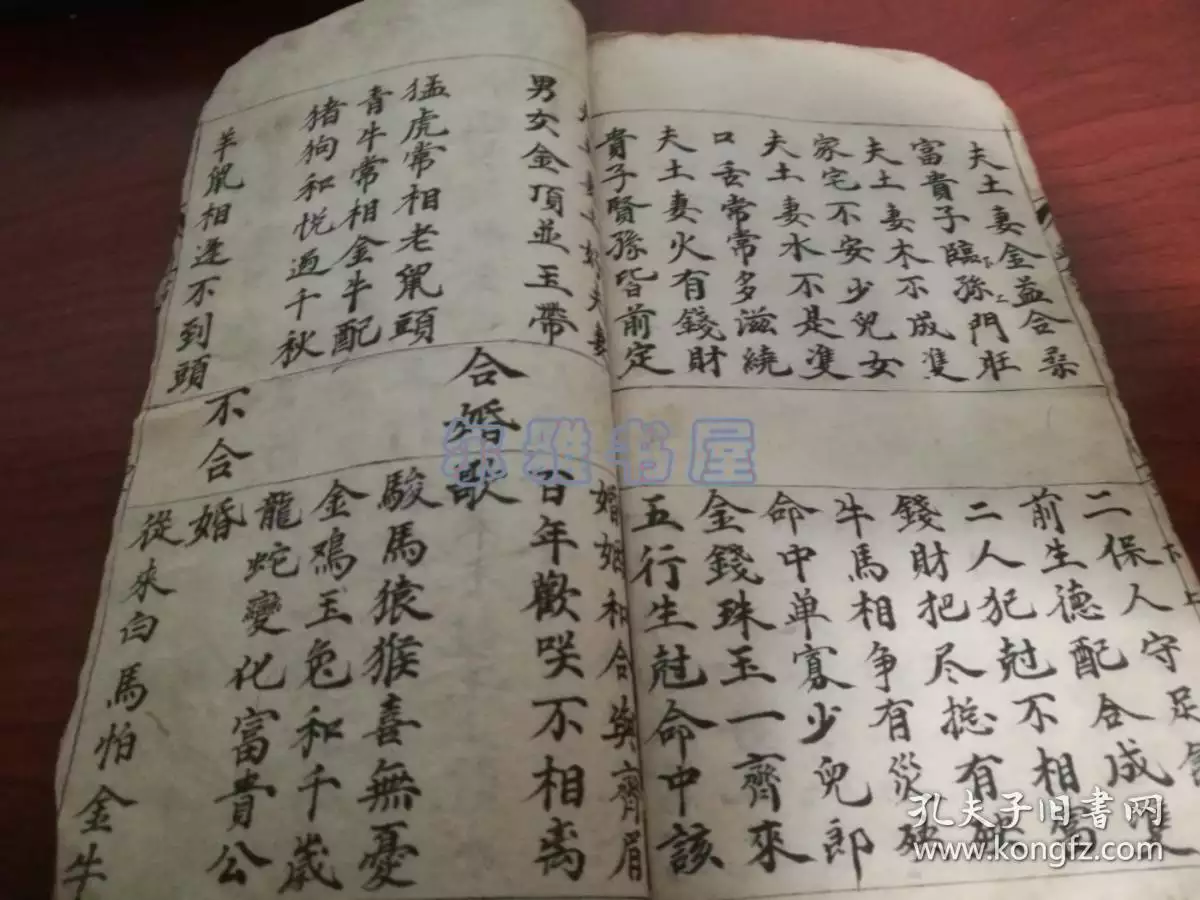 夫土妻金益合柔
富貴子臨孫門旺
夫土妻木不成雙
家宅不安少兒女
夫土妻水不是雙
口舌常常多滋繞
夫土妻火有錢財
貴子賢孫皆前定
下上
二保人守足
前生德配合成雙
二人犯尅不相
錢財把尽捴有
牛馬相争有災
命中单寡少兒郎
金錢珠玉一齊來
五行生尅命中該
夫妻
婚姻和合與齊眉
男女金頂並玉帶
百年歡咲不相离
合婚歌
猛虎常相老鼠頭
駿馬猿猴喜無憂
青牛常相金牛配
金鳮玉兔和千歲
猪狗和悦過千秋
龍蛇變化富貴公
不合婚
羊鼠相逢不到頭
從來白馬怕金牛
泰雅书屋
孔夫子旧書网
www.kongfz.com